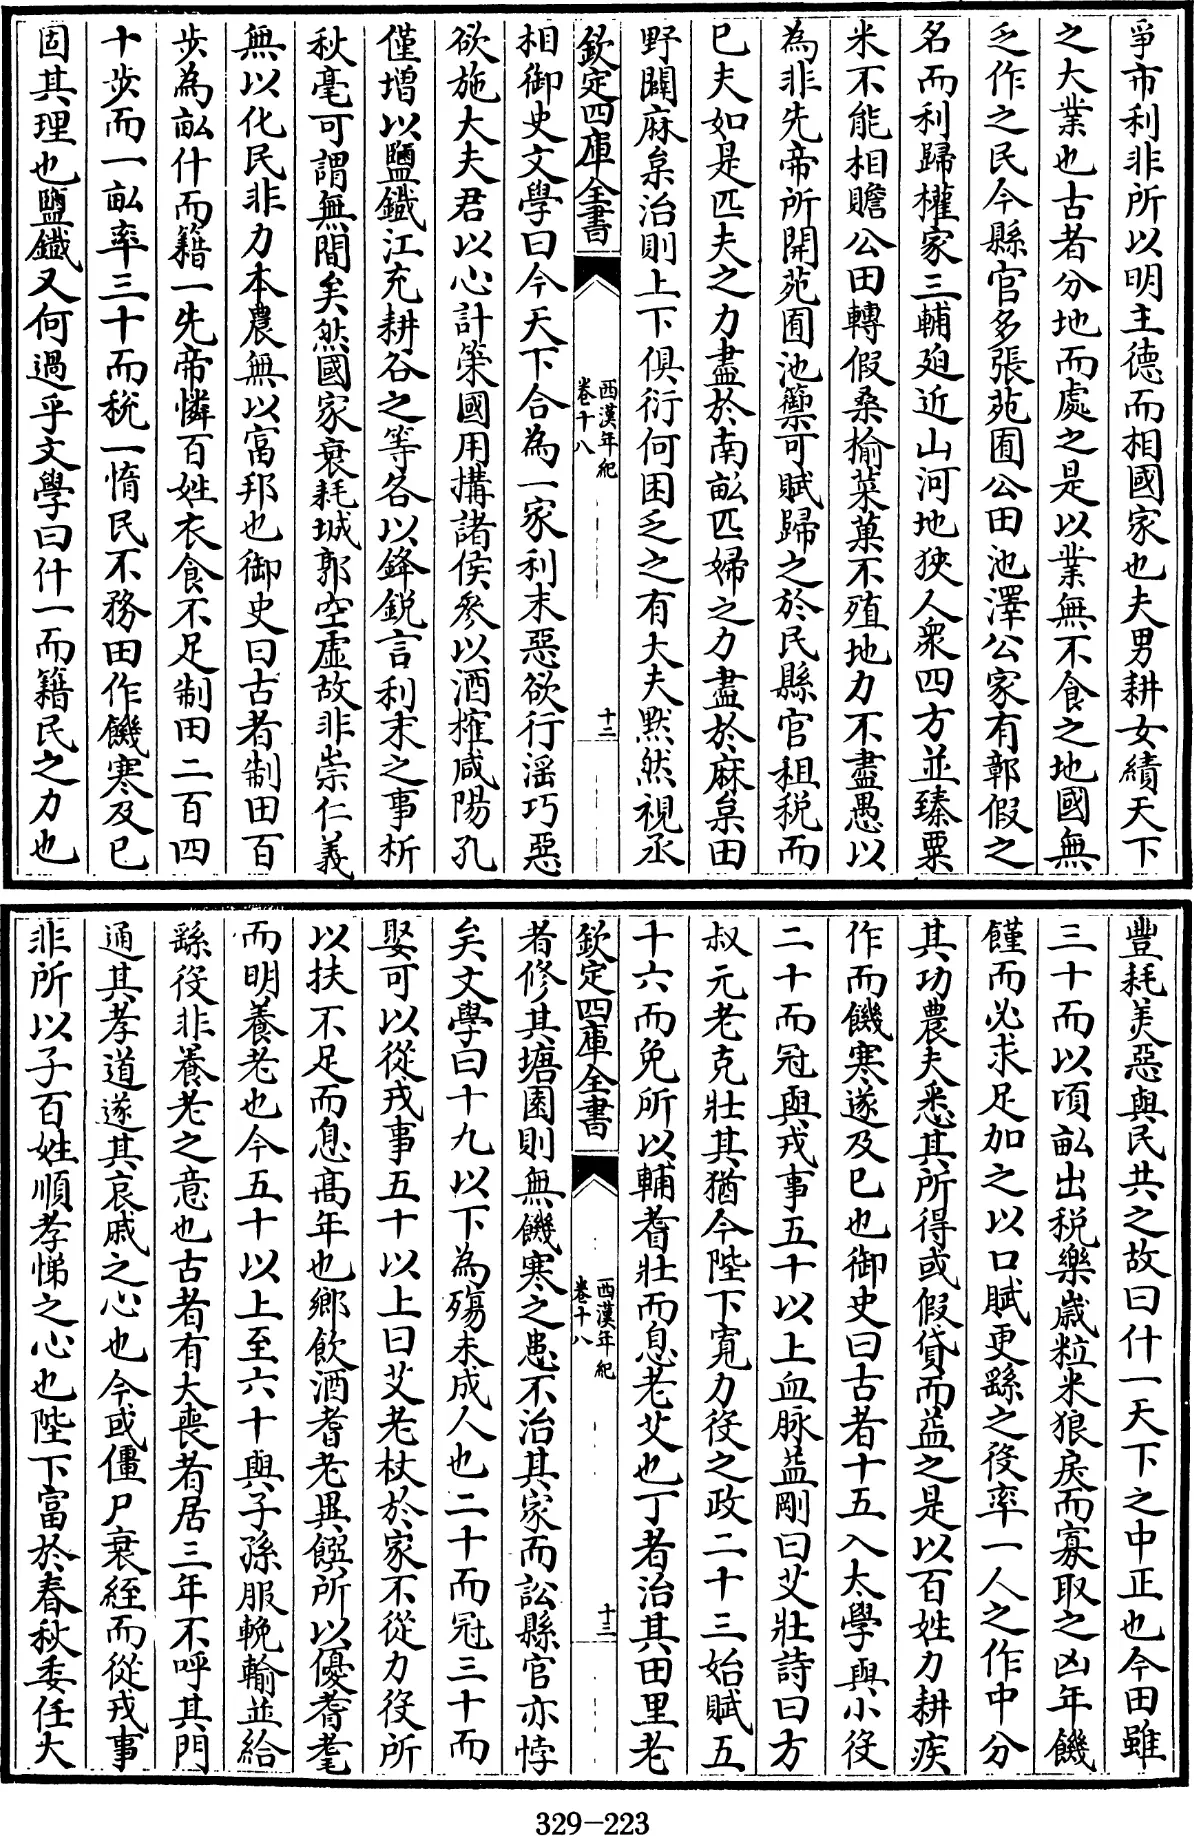 爭市利非所以明主德而相國家也夫男耕女績天下
之大業也古者分地而處之是以業無不食之地國無
乏作之民今縣官多張苑囿公田池澤公家有鄣假之
名而利歸權家三輔廹近山河地狹人衆四方並臻粟
米不能相贍公田轉假桑榆菜菓不殖地力不盡愚以
為非先帝所開苑囿池籞可賦歸之於民縣官租稅而
已夫如是匹夫之力盡於南畝匹婦之力盡於麻枲田
野闢麻枲治則上下俱衍何困乏之有大夫黙然視丞
欽定四庫全書
西漢年紀
卷十八
十二
相御史文學曰今天下合為一家利末惡欲行滛巧惡
欲施大夫君以心計策國用搆諸侯參以酒榷咸陽孔
僅增以鹽鐵江充耕谷之等各以鋒鋭言利末之事析
秋毫可謂無間矣然國家衰耗城郭空虛故非崇仁義
無以化民非力本農無以富邦也御史曰古者制田百
歩為畝什而籍一先帝憐百姓衣食不足制田二百四
十歩而一畝率三十而稅一惰民不務田作饑寒及已
固其理也鹽鐵又何過乎文學曰什一而籍民之力也
豐耗美惡與民共之故曰什一天下之中正也今田雖
三十而以頃畝出税樂嵗粒米狼戾而寡取之凶年饑
饉而必求足加之以口賦更繇之役率一人之作中分
其功農夫悉其所得或假貸而益之是以百姓力耕疾
作而饑寒遂及已也御史曰古者十五入太學與小役
二十而冠與戎事五十以上血脉益剛曰艾壯詩曰方
叔元老克壯其猶今陛下寛力役之政二十三始賦五
十六而免所以輔耆壯而息老艾也丁者治其田里老
欽定四庫全書
西漢年紀
卷十八
十三
者修其塘園則無饑寒之患不治其家而訟縣官亦悖
矣文學曰十九以下為殤未成人也二十而冠三十而
娶可以從戎事五十以上曰艾老杖於家不從力役所
以扶不足而息髙年也鄉飲酒耆老異饌所以優耆耄
而明養老也今五十以上至六十與子孫服輓輸並給
繇役非養老之意也古者有大喪者居三年不呼其門
通其孝道遂其哀戚之心也今或僵尸衰絰而從戎事
非所以子百姓順孝悌之心也陛下富於春秋委任大
329-223